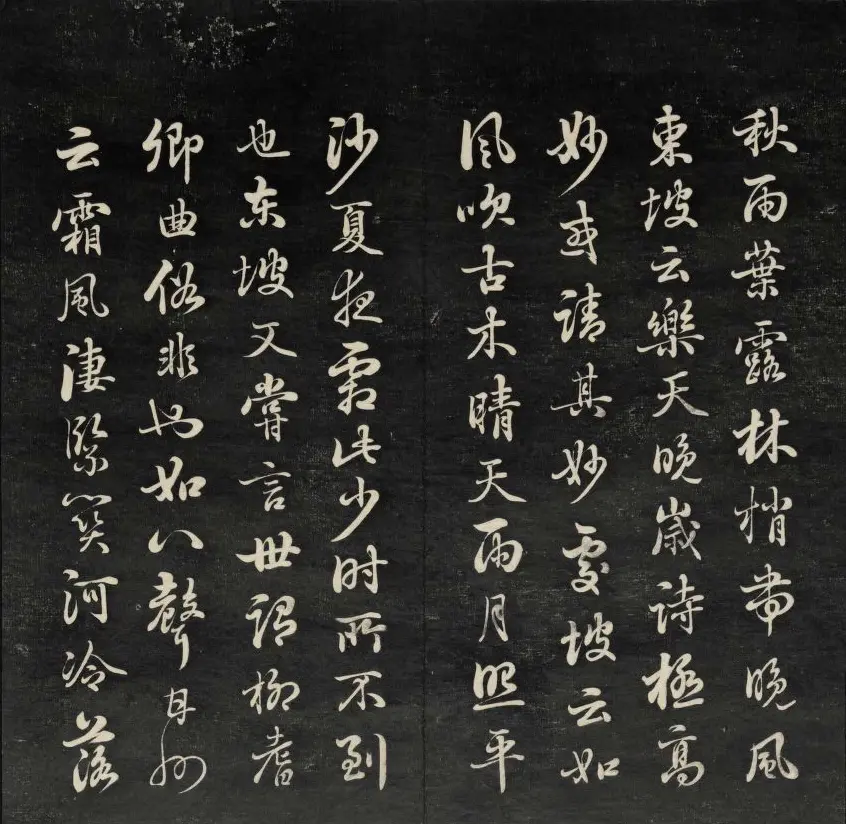 秋雨葉露林梢帶晚風
東坡云樂天晚歲詩極高
妙或請其妙處坡云如
風吹古木晴天雨月照平
沙夏夜霜此少时所不到
也东坡又嘗言世謂柳耆
卿曲俗非也如八聲甘州
云霜風淒緊關河冷落